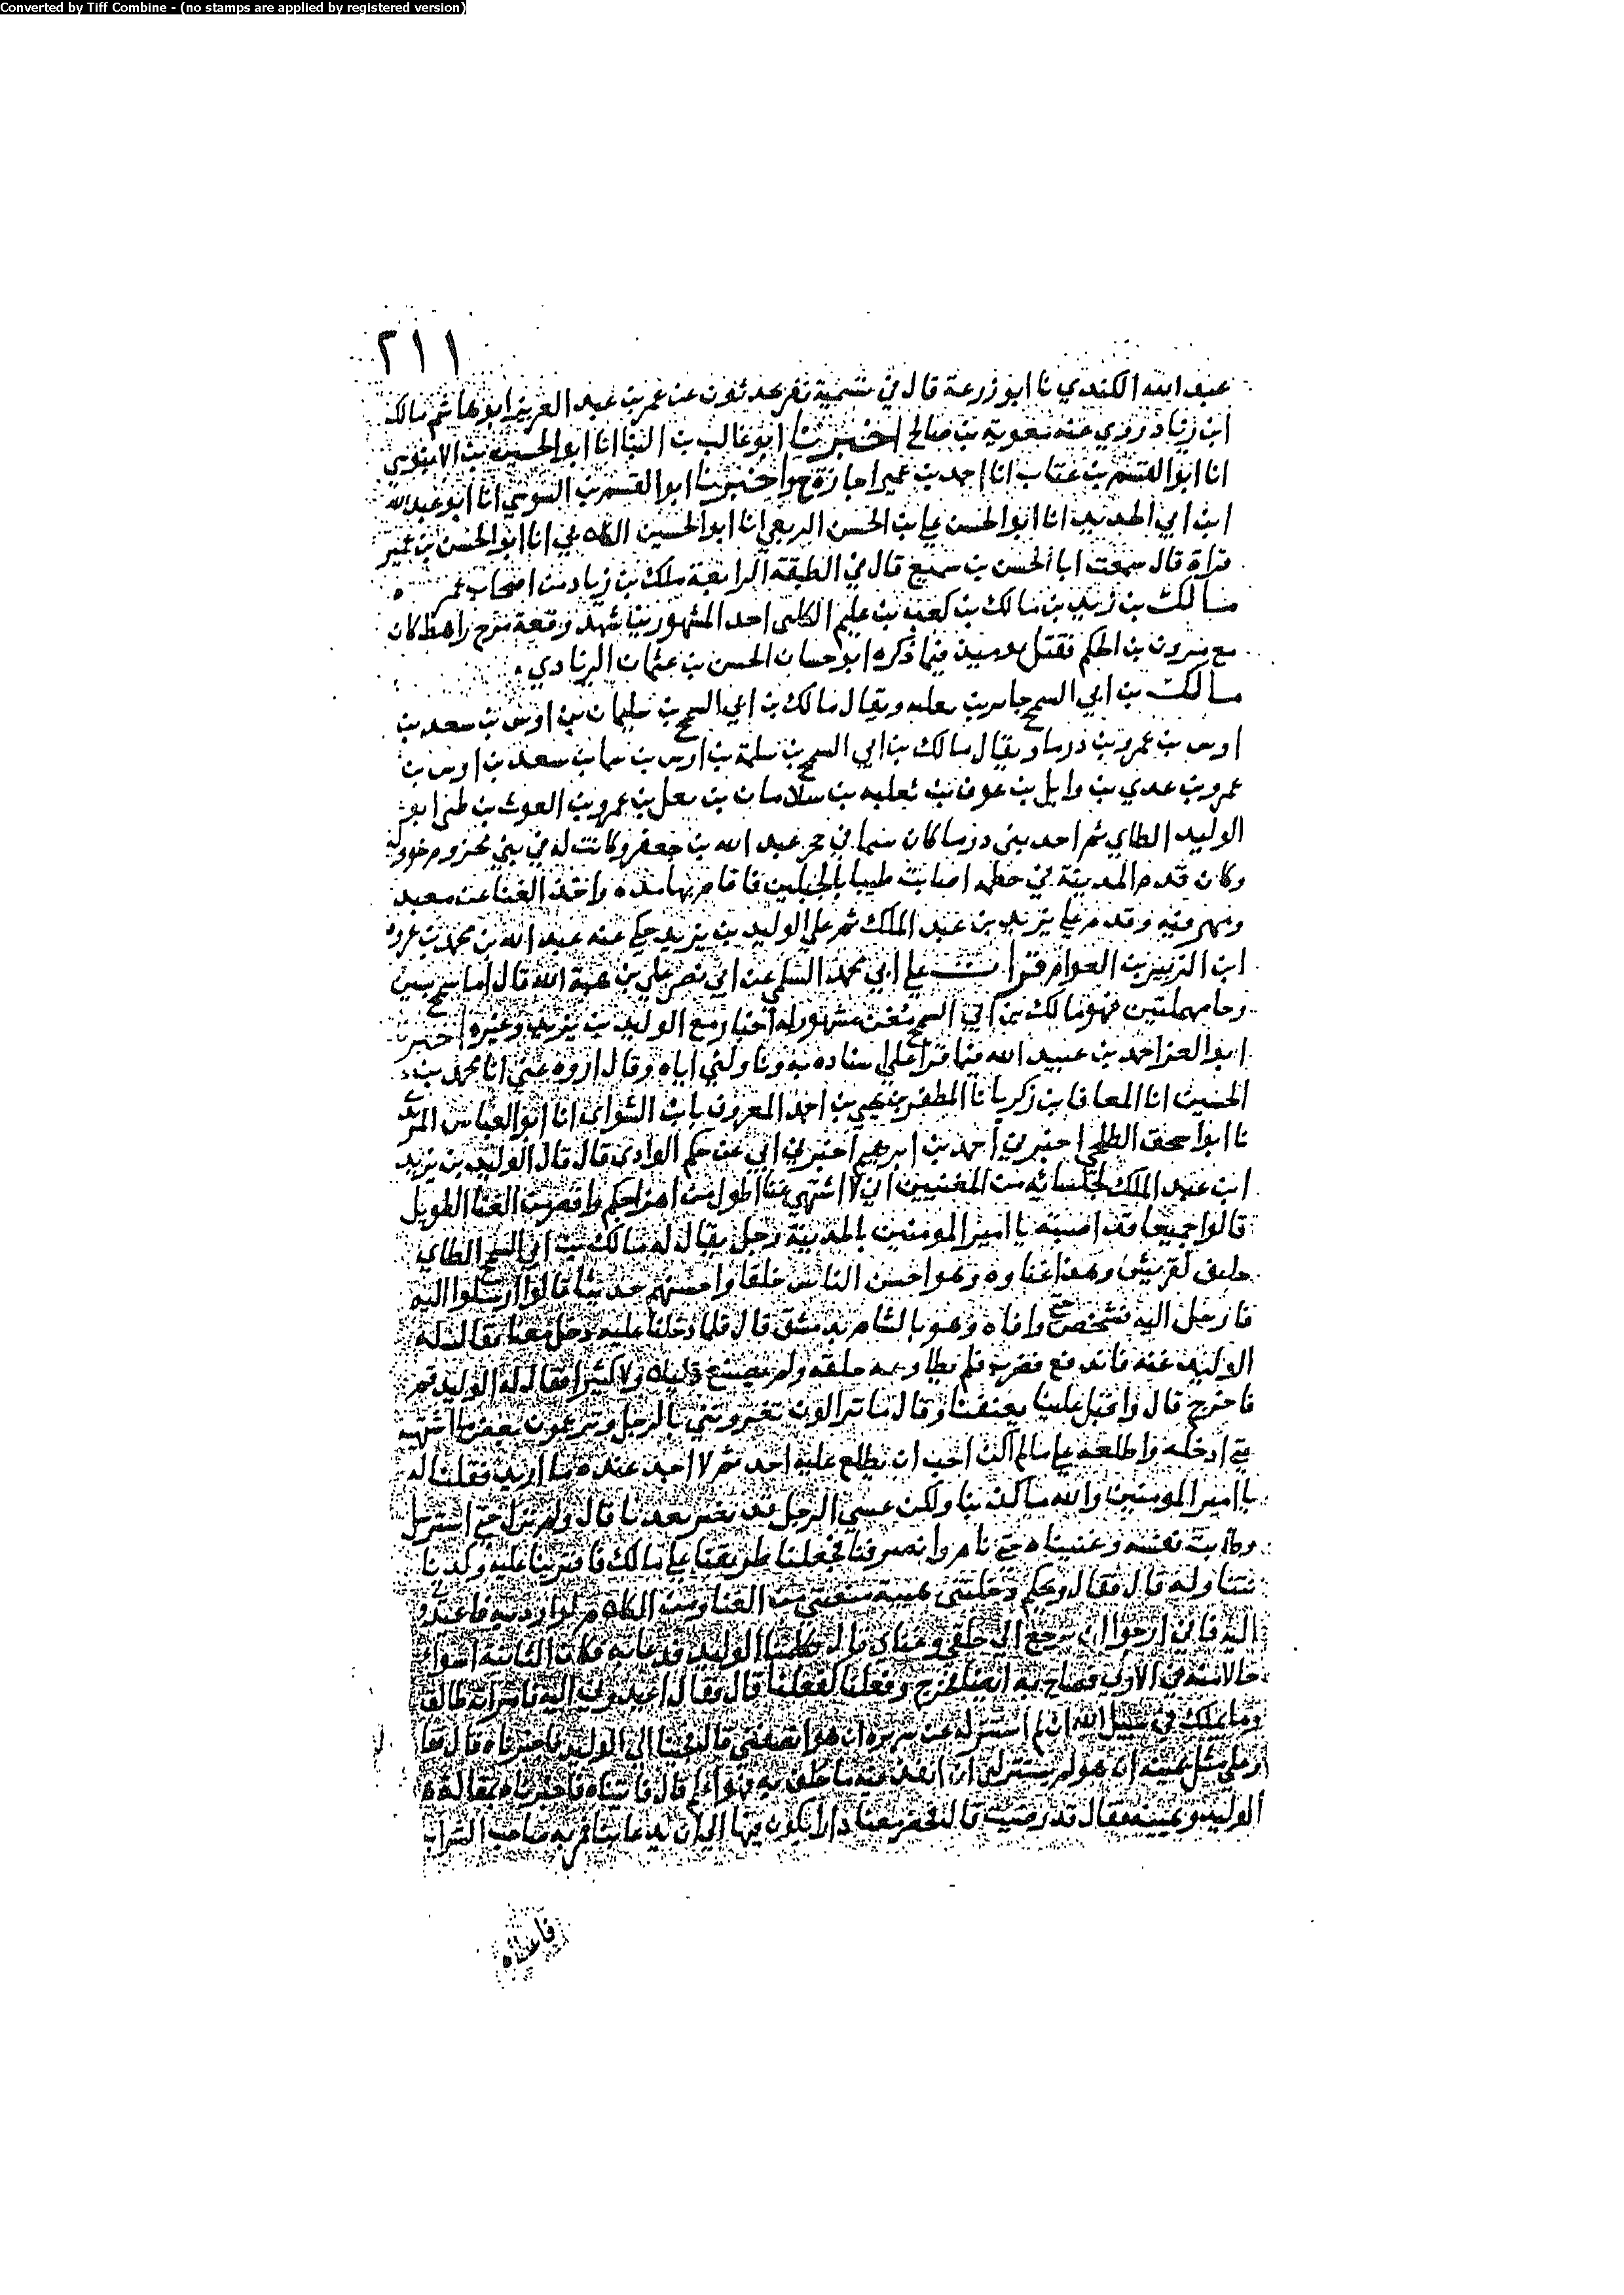 Converted by Tiff Combine - (no stamps are applied by registered version)
٢١١
عبد الله الكندي نا ابو زرعة قال في تسمية نفر يحدثون عن عمر بن عبد العزيز ابو هاشم مالك
ابن زياد روى عنه معوية بن صالح اخبرنا ابو غالب بن البنا انا ابو الحسين بن الابنوسي
انا ابو القسم بن عتاب انا احمد بن عمير اجازة ح واخبرنا ابو القسم بن السوسي انا ابو عبد الله
ابن ابي الحديد انا ابو الحسن علي بن الحسن الربعي انا ابو الحسين الكلابي انا ابو الحسن بن عمير
قراة قال سمعت ابا الحسن بن سميع قال في الطبقة الرابعة ملك بن زياد من اصحاب عمر ٥
مالك بن زيد بن مالك بن كعب بن عليم الكلبي احد المشهورين شهد وقعة مرج راهط كان
مع مرون بن الحكم فقتل يوميذ فيما ذكره ابو حسان الحسن بن عثمان الزيادي
مالك بن ابي السمح جابر بن ثعلبه ويقال مالك بن ابي السمح بن سليمان بن اوس بن سعد بن
اوس بن عمرو بن درما ويقال مالك بن ابي السمح بن سلمة بن اوس بن سماك بن سعد بن اوس بن
عمرو بن عدي بن وايل بن عوف بن ثعلبه بن سلامان بن ثعل بن عمرو بن الغوث بن طي ابو
الوليد الطاي ثم احد بني درما كان يتيما في حجر عبد الله بن جعفر وكانت له في بني مخزوم خوولة
وكان قدم المدينة في حطمه اصابت طيبا بالجبلين فاقام بها مده واخذ الغنا عن معبد
ومهر فيه وقدم على يزيد بن عبد الملك ثم على الوليد بن يزيد حكى عنه عبد الله بن محمد بن عروه
ابن الزبير بن العوام قرات على ابي محمد السلمي عن ابي نصر علي بن هبة الله قال اما سمح بسين
وحا مهملتين فهو مالك بن ابي السمح مغن مشهور له اخبار مع الوليد بن يزيد وغيره اخبرنا
ابو العز احمد بن عبيد الله فيما قرا علي اسناده به وناولني اياه وقال اروه عني انا محمد بن
الحسين انا المعافا بن زكريا نا المظفر بن يحيى بن احمد المعروف بابن الشرابي انا ابو العباس المرثدي
نا ابو اسحق الطلحي اخبرني احمد بن ابرهيم اخبرني ابي عن حكم الوادي قال قال الوليد بن يزيد
ابن عبد الملك لجلسائه من المغنيين اني لاشتهي غنا اطول من اهزاجكم واقصر من الغنا الطويل
قالوا جميعا قد اصبته يا امير المومنين بالمدينة رجل يقال له مالك بن ابي السمح الطاي
حليف لقريش وهذا غناوه وهو احسن الناس خلقا واحسنهم حديثا قالوا ارسلوا اليه
فارسل اليه فشخص حتى وافاه وهو بالشام بدمشق قال فلما دخلنا عليه دخل معنا فقال له
الوليد غنه فاندفع فضرب فلم يطاوعه حلقه ولم يصنع قليلا ولا كثيرا فقال له الوليد قم
فاخرج قال واقبل علينا يعنفنا وقال ما تزالون تغرونني بالرجل وتزعمون بعض ما اشتهيه
حتى ادخله واطلعه على ما لم اكن احب ان يطلع عليه احد ثم لا اجد عنده ما اريد فقلنا له
يا امير المومنين والله ما كذبنا ولكن عسى الرجل قد تغير بعدنا قال ولم نزل حتى استرسل
وطابت نفسه وغنيناه حتى نام وانصرفنا فجعلنا طريقنا على مالك فافترينا عليه وكدنا
نتناوله قال فقال ويحكم دخلتني هيبة منعتني من الغنا ومن الكلام لو اردته فاعيدوني
اليه فاني ارجوا ان يرجع الي حلقي وغناي قال فكلمنا الوليد فدعا به فكان الثانية اسوا
حالا منه في الاولى فصاح به ايضا فخرج وفعلنا كفعلنا قال فقال اعيدوني اليه فامراته طالق
وما يملك في سبيل الله ان لم استنزله عن سريره ان هو انصفني قال فجينا الى الوليد فاخبرناه فقال
وعلي مثل يمينه ان هو لم يستنزلني ان انفذ فيه ما حلف به فهو اعلم قال فاتيناه فاخبرناه بمقالة
الوليد ويمينه فقال قد رضيت قال فحضر معنا دارا يكون فيها الى ان يدعا بنا فمر به صاحب الشراب
فاعطاه